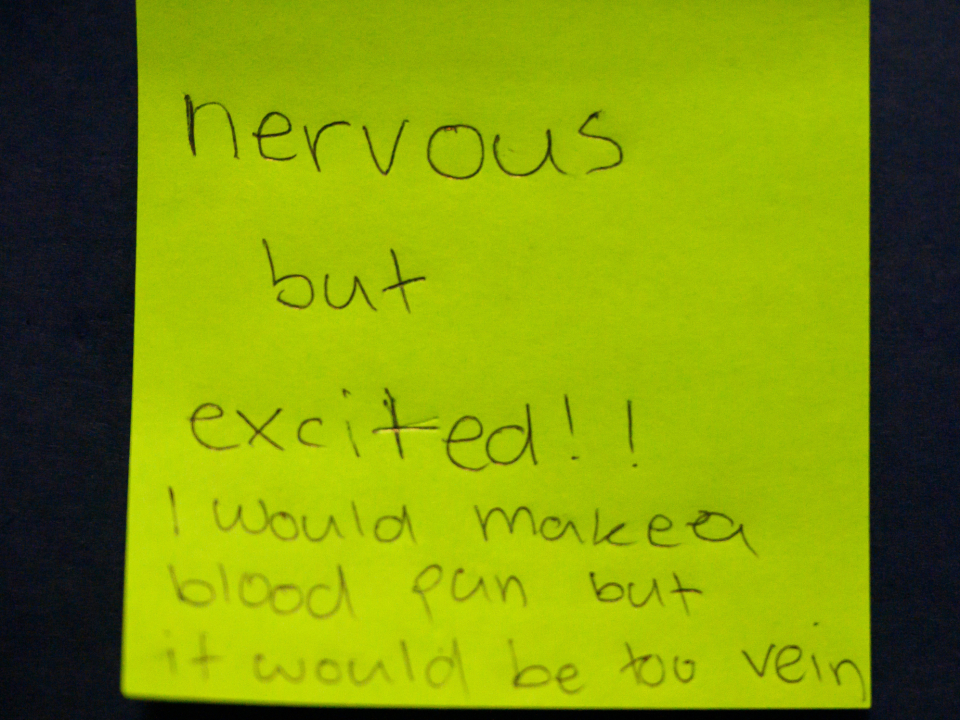 nervous
but
excited!!
I would make a
blood pun but
it would be too vein